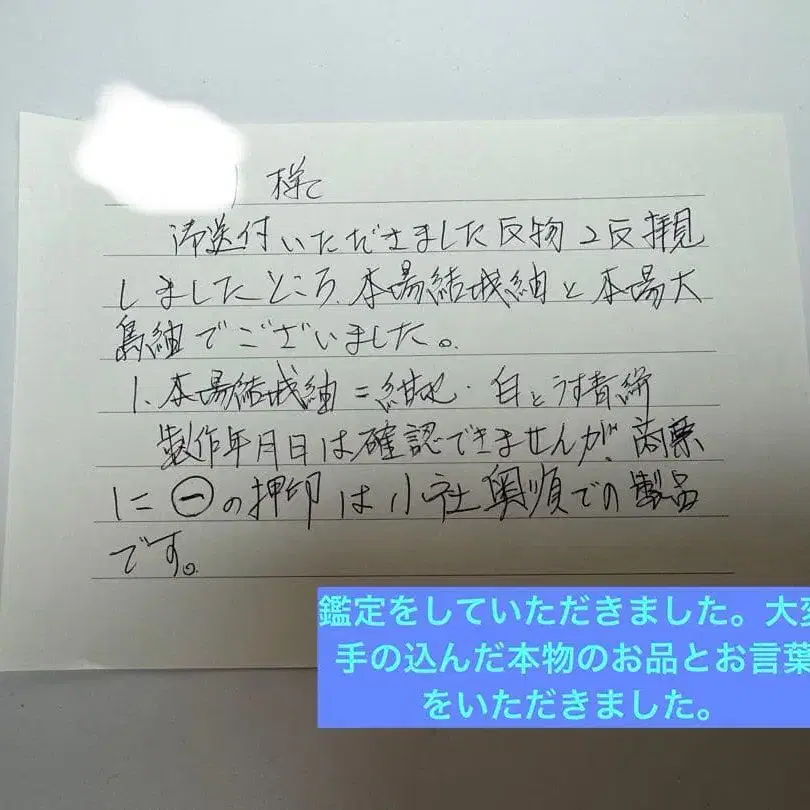 様
御送付いただきました反物2反拝見
しましたところ、本場結城紬と本場大
島紬でございました。
1. 本場結城紬=紺地・白とうす青絣
製作年月日は確認できませんが、商票
に㊀の押印は小社奥順での製品
です。
鑑定をしていただきました。大変
手の込んだ本物のお品とお言葉
をいただきました。